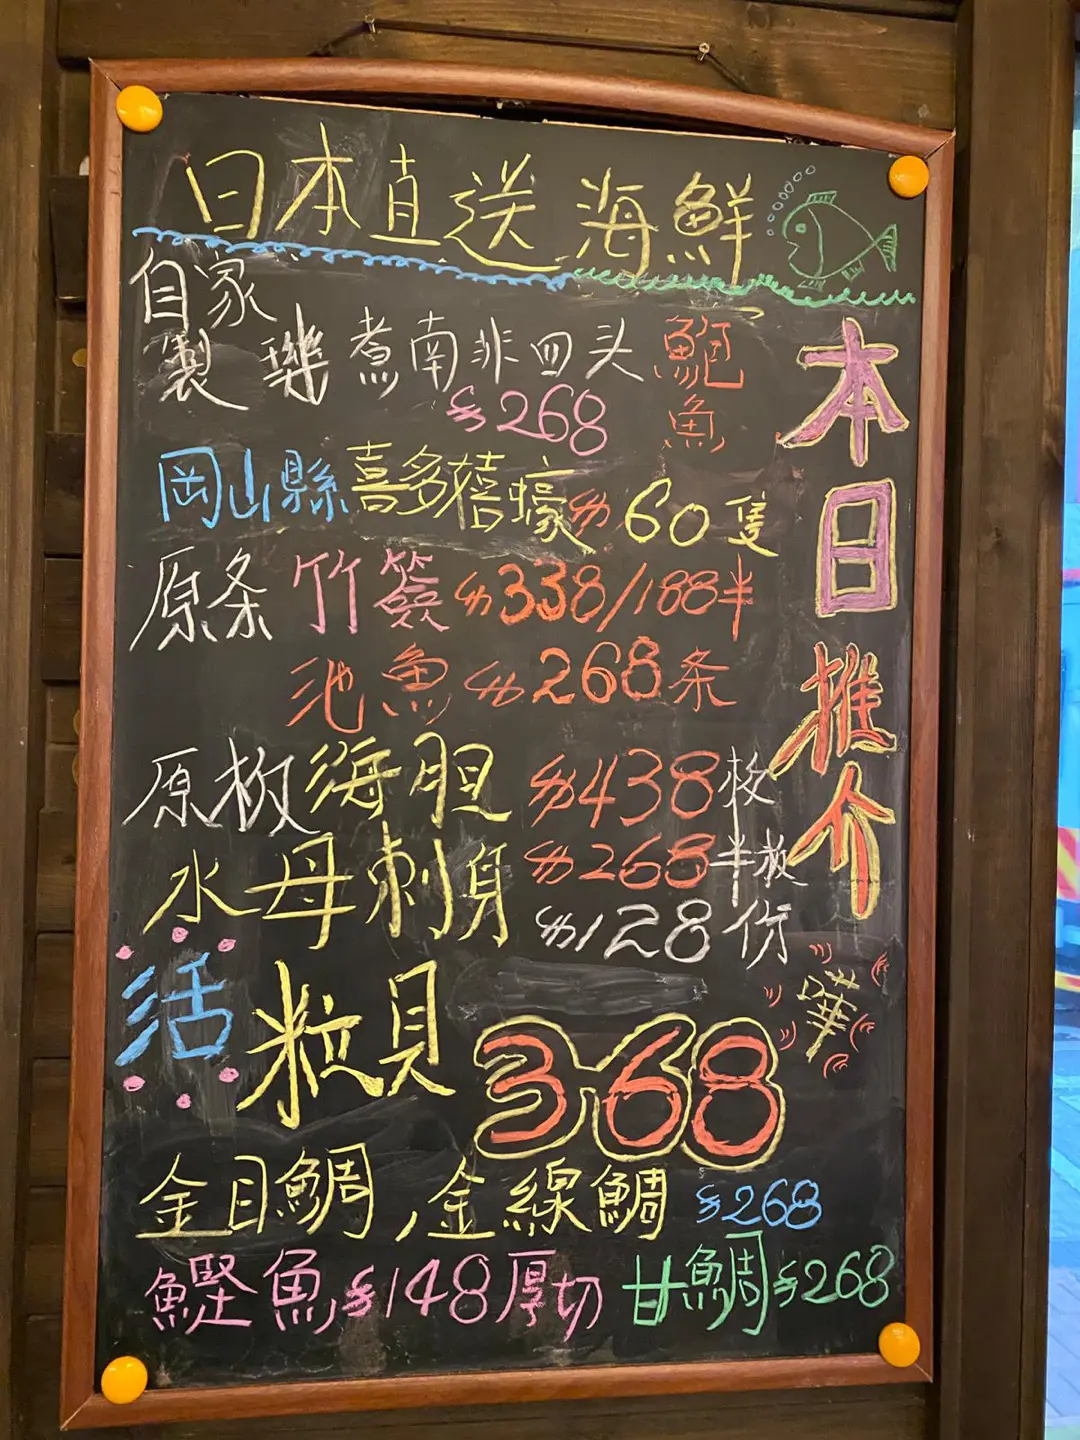 日本直送 海鮮
本日推介
自家
製 璣煮南非四头鮑魚
$268
岡山縣喜多禧蠔 $60隻
原条竹簽 $338/188半
池魚 $268条
原板海胆 $438板
$268半板
水母刺身 $128份
活粒貝 368
嘩
金目鯛,金線鯛 $268
鰹魚 $148厚切 甘鯛 $268